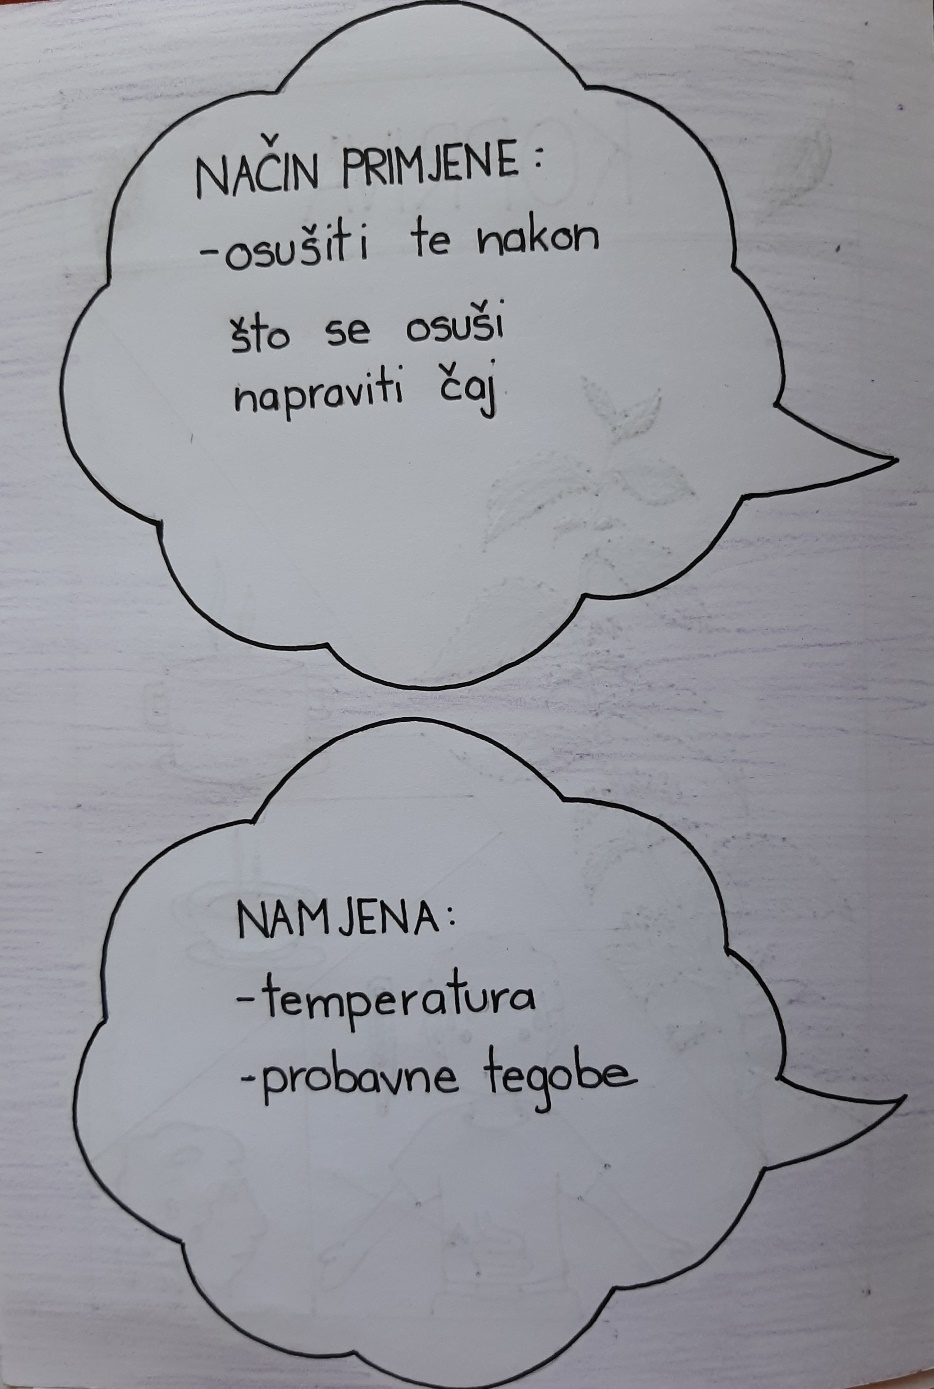 NAČIN PRIMJENE:
-osušiti te nakon
što se osuši
napraviti čaj
NAMJENA:
-temperatura
-probavne tegobe